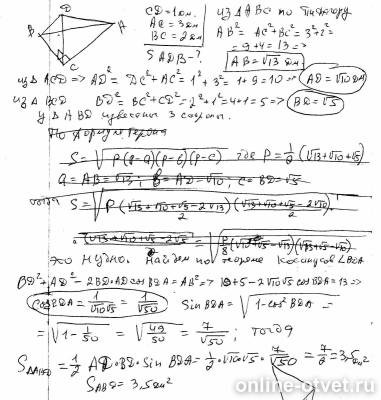 D
B
A
C
CD=1см.
AC=3см
BC=2см
S ADB-?
из △ABC по Пифагору
AB²=AC²+BC²=3²+2²=
=9+4=13 =>
AB=√13 см
из △ACD => AD²=DC²+AC²=1²+3²=1+9=10 => AD=√10см
из △BCD BD²=BC²+CD²=2²+1²=4+1=5 => BD=√5
у △ABD известны 3 стороны.
По формуле Герона
S=√P(p-a)(p-b)(p-c) где P=1/2(√13+√10+√5)
a=AB=√13; b=AD=√10; c=BD=√5
тогда S=√P(√13+√10+√5-2√13)/2 (√13+√10+√5-2√10)/2
(√13+√10+√5-2√5)
это нудно. Найдем по теореме косинусов ∠BDA
BD²+AD²-2BD·AD cos BDA=AB² => 10+5-2√10√5 cos BDA=13 =>
cos BDA=1/√10√5=1/√50 sin BDA=√1-cos²BDA=
=√1-1/50=√49/50=7/√50; тогда
S△ABD=1/2 AD·BD·sin BDA=1/2·√10√5·7/√50=7/2=3,5см²
S ABD=3,5см²
online-otvet.ru